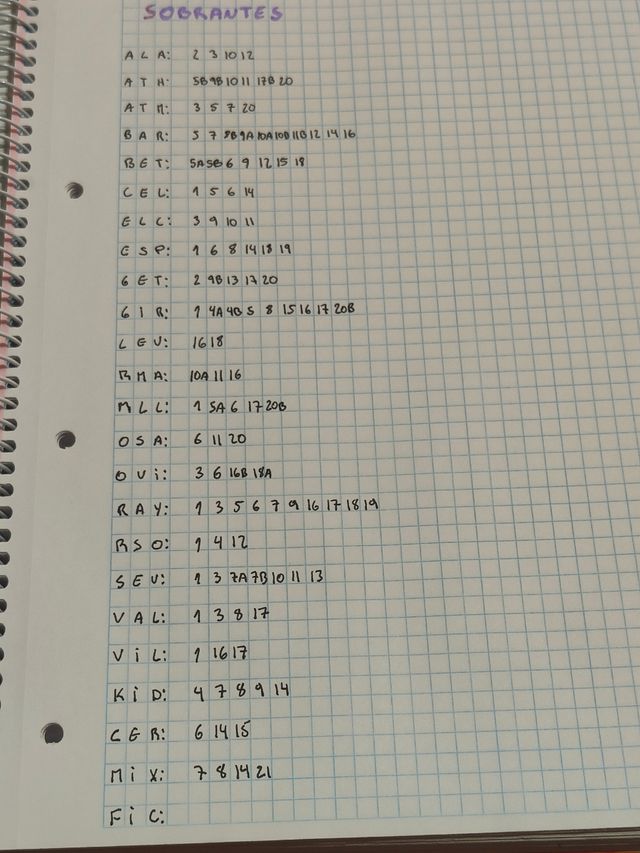 SOBRANTES
ALA: 2 3 10 12
ATH: 5B 9B 10 11 17B 20
ATM: 3 5 7 20
BAR: 5 7 8B 9A 10A 10B 11B 12 14 16
BET: 5A 5B 6 9 12 15 18
CEL: 1 5 6 14
ELC: 3 9 10 11
ESP: 1 6 8 14 18 19
GET: 2 9B 13 17 20
GIR: 1 4A 4B 5 8 15 16 17 20B
LEV: 16 18
RMA: 10A 11 16
MLL: 1 5A 6 17 20B
OSA: 6 11 20
OVi: 3 6 16B 18A
RAY: 1 3 5 6 7 9 16 17 18 19
RSO: 1 4 12
SEV: 1 3 7A 7B 10 11 13
VAL: 1 3 8 17
ViL: 1 16 17
KiD: 4 7 8 9 14
CER: 6 14 15
MiX: 7 8 14 21
FiC: